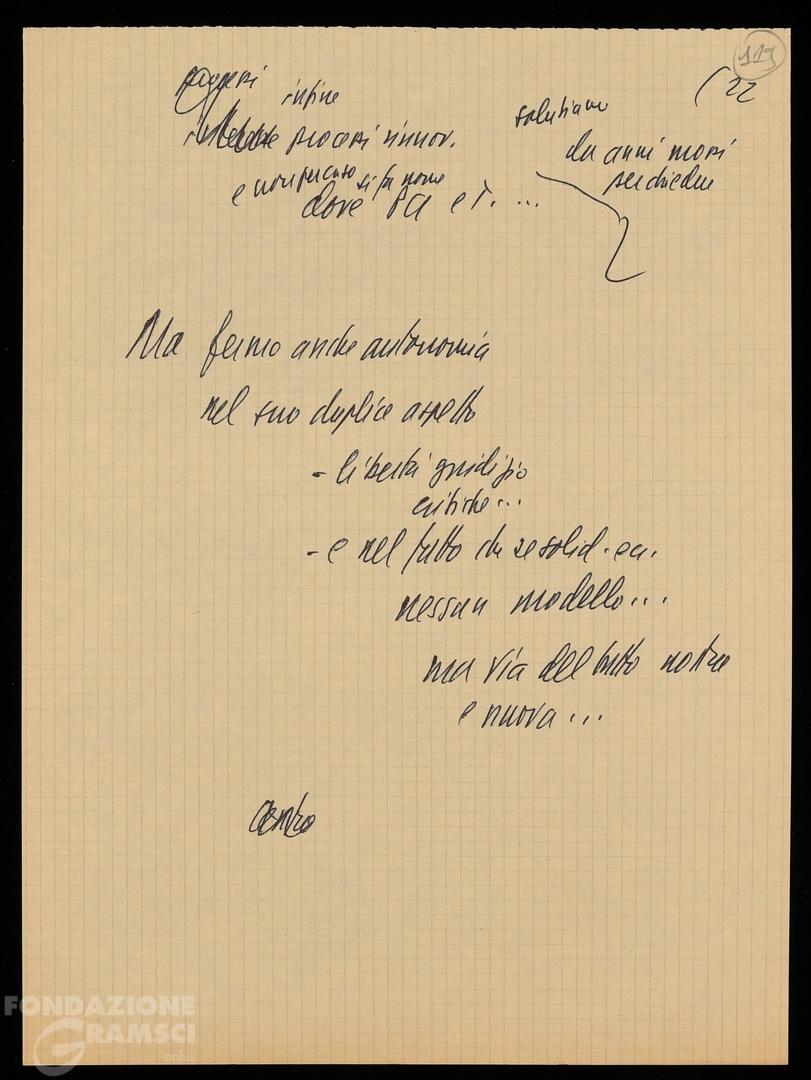 119
(22
infine
processi rinnov.
e non per caso si fa nome
dove Pa e i. ...
salutiamo
da anni mossi
Ma fermo anche autonomia
nel suo duplice aspetto
- libertà giudizio
critiche...
- e nel fatto che se solid. ecc.
nessun modello...
ma via del tutto nostra
e nuova...
FONDAZIONE
GRAMSCI
onlus